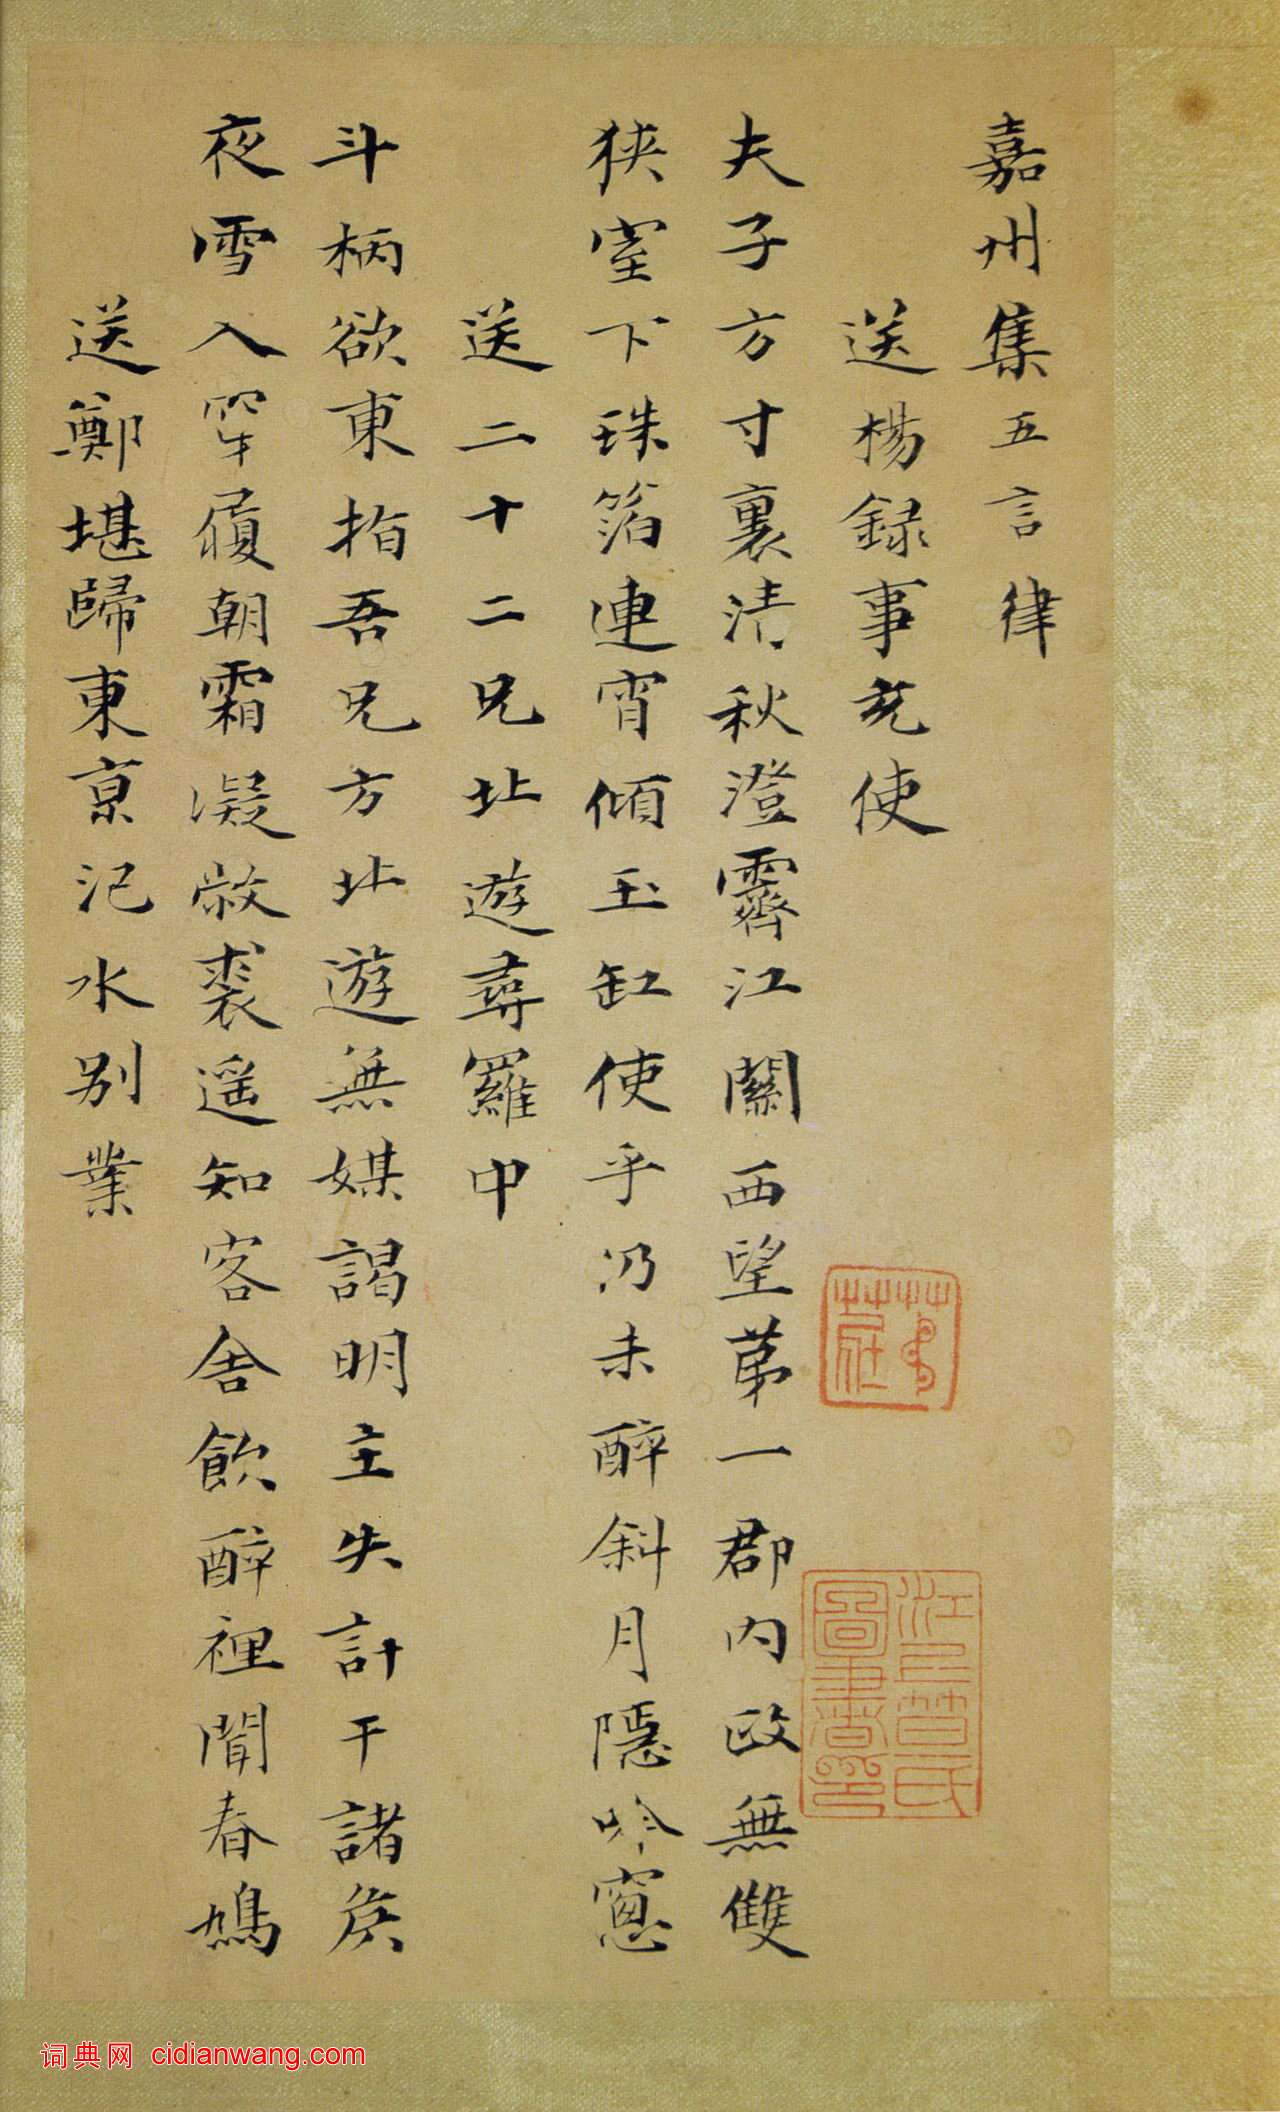 嘉州集五言律
送楊録事充使
夫子方寸裏清秋澄霽江關西望苐一郡内政無雙
狭室下珠箔連宵傾玉缸使乎仍未醉斜月隱吟窻
送二十二兄北遊尋羅中
斗柄欲東指吾兄方北遊無媒謁明主失計干諸矦
夜雪入穿履朝霜凝敝裘遥知客舎飲醉裡聞春鳩
送鄭堪歸東京汜水别業
江上笪氏圖書印
词典网 cidianwang.com